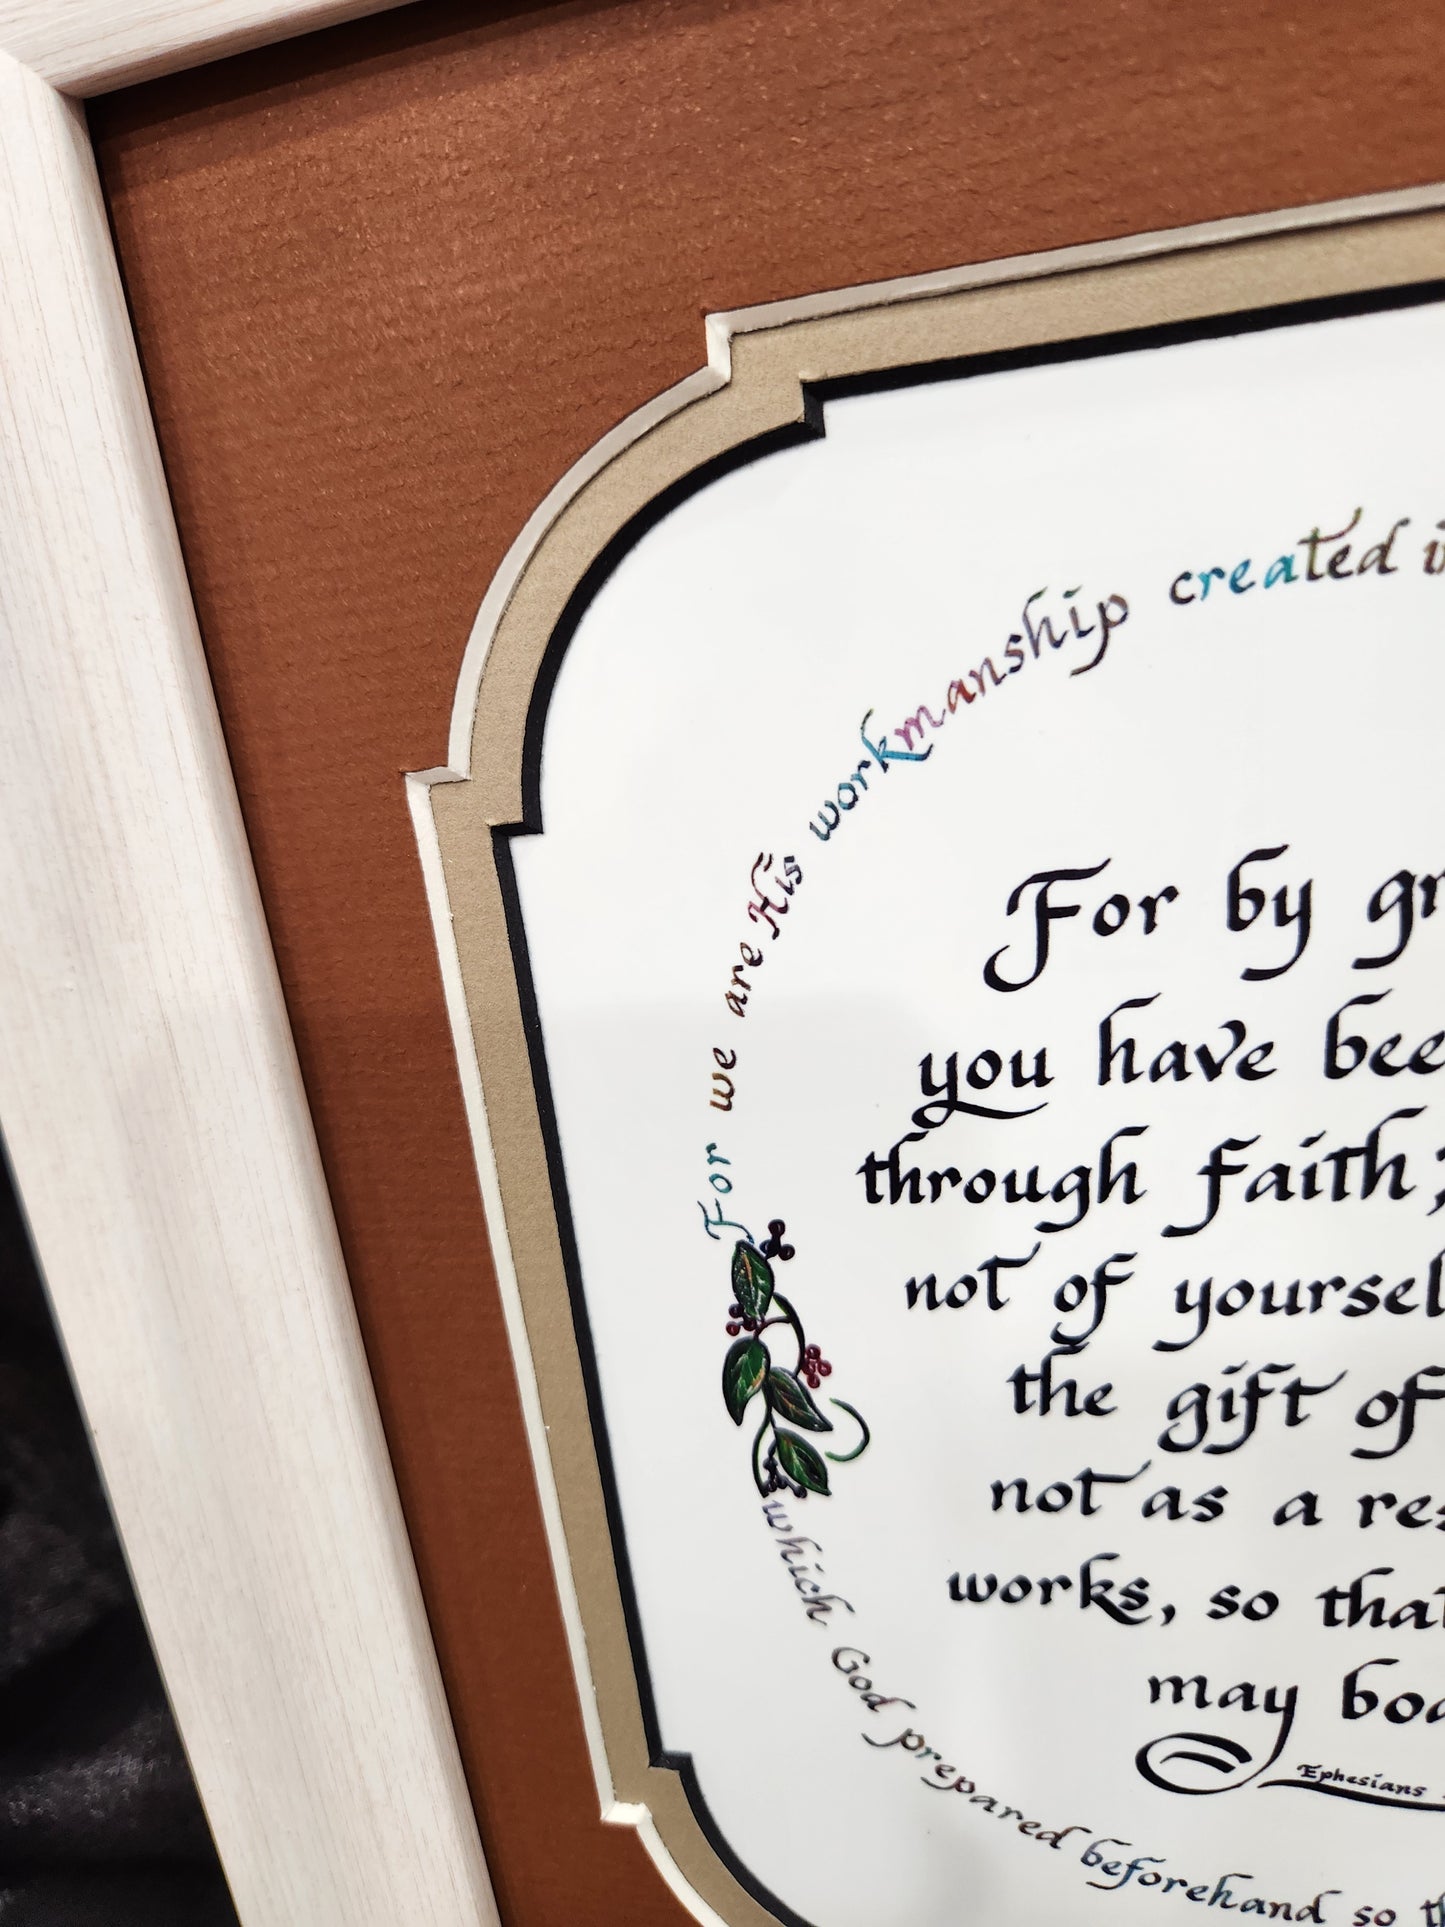 For we are His workmanship created
For by
you have
through faith;
not of
the gift of
not as a
works, so
may
Ephesians
which God prepared beforehand so